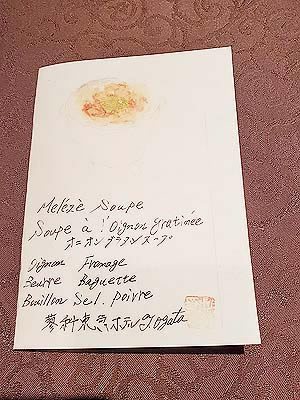 Mélèzè Soupe
Soupe à l'Oignon gratinée
オニオングラタンスープ
Oignon Fromage
Beurre Baguette
Bouillon Sel. poivre
蓼科東急ホテル J.Ogata